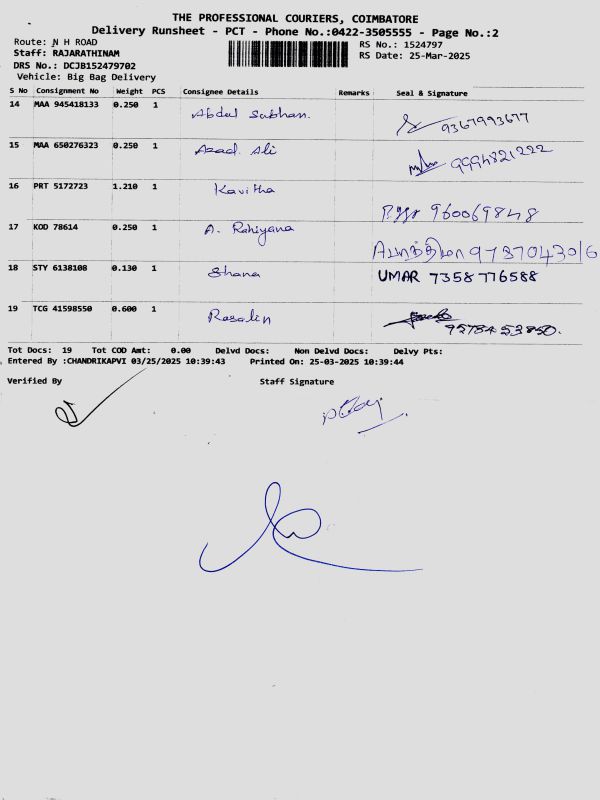 THE PROFESSIONAL COURIERS, COIMBATORE
Delivery Runsheet - PCT - Phone No.:0422-3505555 - Page No.:2
Route: N H ROAD RS No.: 1524797
Staff: RAJARATHINAM RS Date: 25-Mar-2025
DRS No.: DCJB152479702
Vehicle: Big Bag Delivery
S No Consignment No Weight PCS Consignee Details Remarks Seal & Signature
14 MAA 945418133 0.250 1 Abdul Subhan. 9367993677
15 MAA 650276323 0.250 1 Azad. Ali 9994821222
16 PRT 5172723 1.210 1 Kavitha
960069848
17 KOD 78614 0.250 1 A. Rahiyana
9787043016
18 STY 6138108 0.130 1 Shana UMAR 7358776588
19 TCG 41598550 0.600 1 Rosalin
9578453850.
Tot Docs: 19 Tot COD Amt: 0.00 Delvd Docs: Non Delvd Docs: Delvy Pts:
Entered By :CHANDRIKAPVI 03/25/2025 10:39:43 Printed On: 25-03-2025 10:39:44
Verified By Staff Signature